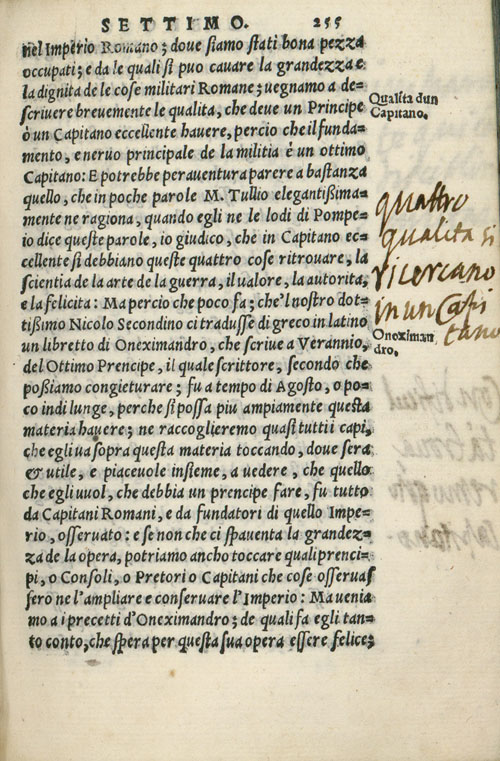 SETTIMO. 255
nel Imperio Romano; doue siamo stati bona pezza
occupati; e da le quali si puo cauare la grandezza e
la dignita de le cose militari Romane; uegnamo a de=
scriuere breuemente le qualita, che deue un Principe
ò un Capitano eccellente hauere, percio che il funda=
mento, e neruo principale de la militia è un ottimo
Capitano: E potrebbe perauentura parere a bastanza
quello, che in poche parole M. Tullio elegantißima=
mente ne ragiona, quando egli ne le lodi di Pompe=
io dice queste parole, io giudico, che in Capitano ec=
cellente si debbiano queste quattro cose ritrouare, la
scientia de la arte de la guerra, il ualore, la autorita,
e la felicita: Ma percio che poco fa; che'l nostro dot=
tißimo Nicolo Secondino ci tradusse di greco in latino
un libretto di Oneximandro, che scriue a Verannio,
del Ottimo Prencipe, il quale scrittore, secondo che
poßiamo congieturare; fu a tempo di Agosto, o po=
co indi lunge, perche si possa piu ampiamente questa
materia hauere; ne raccoglieremo quasi tutti i capi,
che egli ua sopra questa materia toccando, doue sera
& utile, e piaceuole insieme, a uedere, che quello
che egli uuol, che debbia un prencipe fare, fu tutto
da Capitani Romani, e da fundatori di quello Impe=
rio, osseruato: e se non che ci spauenta la grandez=
za de la opera, potriamo ancho toccare quali prenci=
pi, o Consoli, o Pretori o Capitani che cose osseruas
sero ne l'ampliare e conseruare l'Imperio: Ma uenia
mo a i precetti d'Oneximandro; de quali fa egli tan=
to conto, che spera per questa sua opera essere felice;
Qualita dun
Capitano.
quattro
qualita si
ricercano
in un Capi
tano
Oneximan
dro.